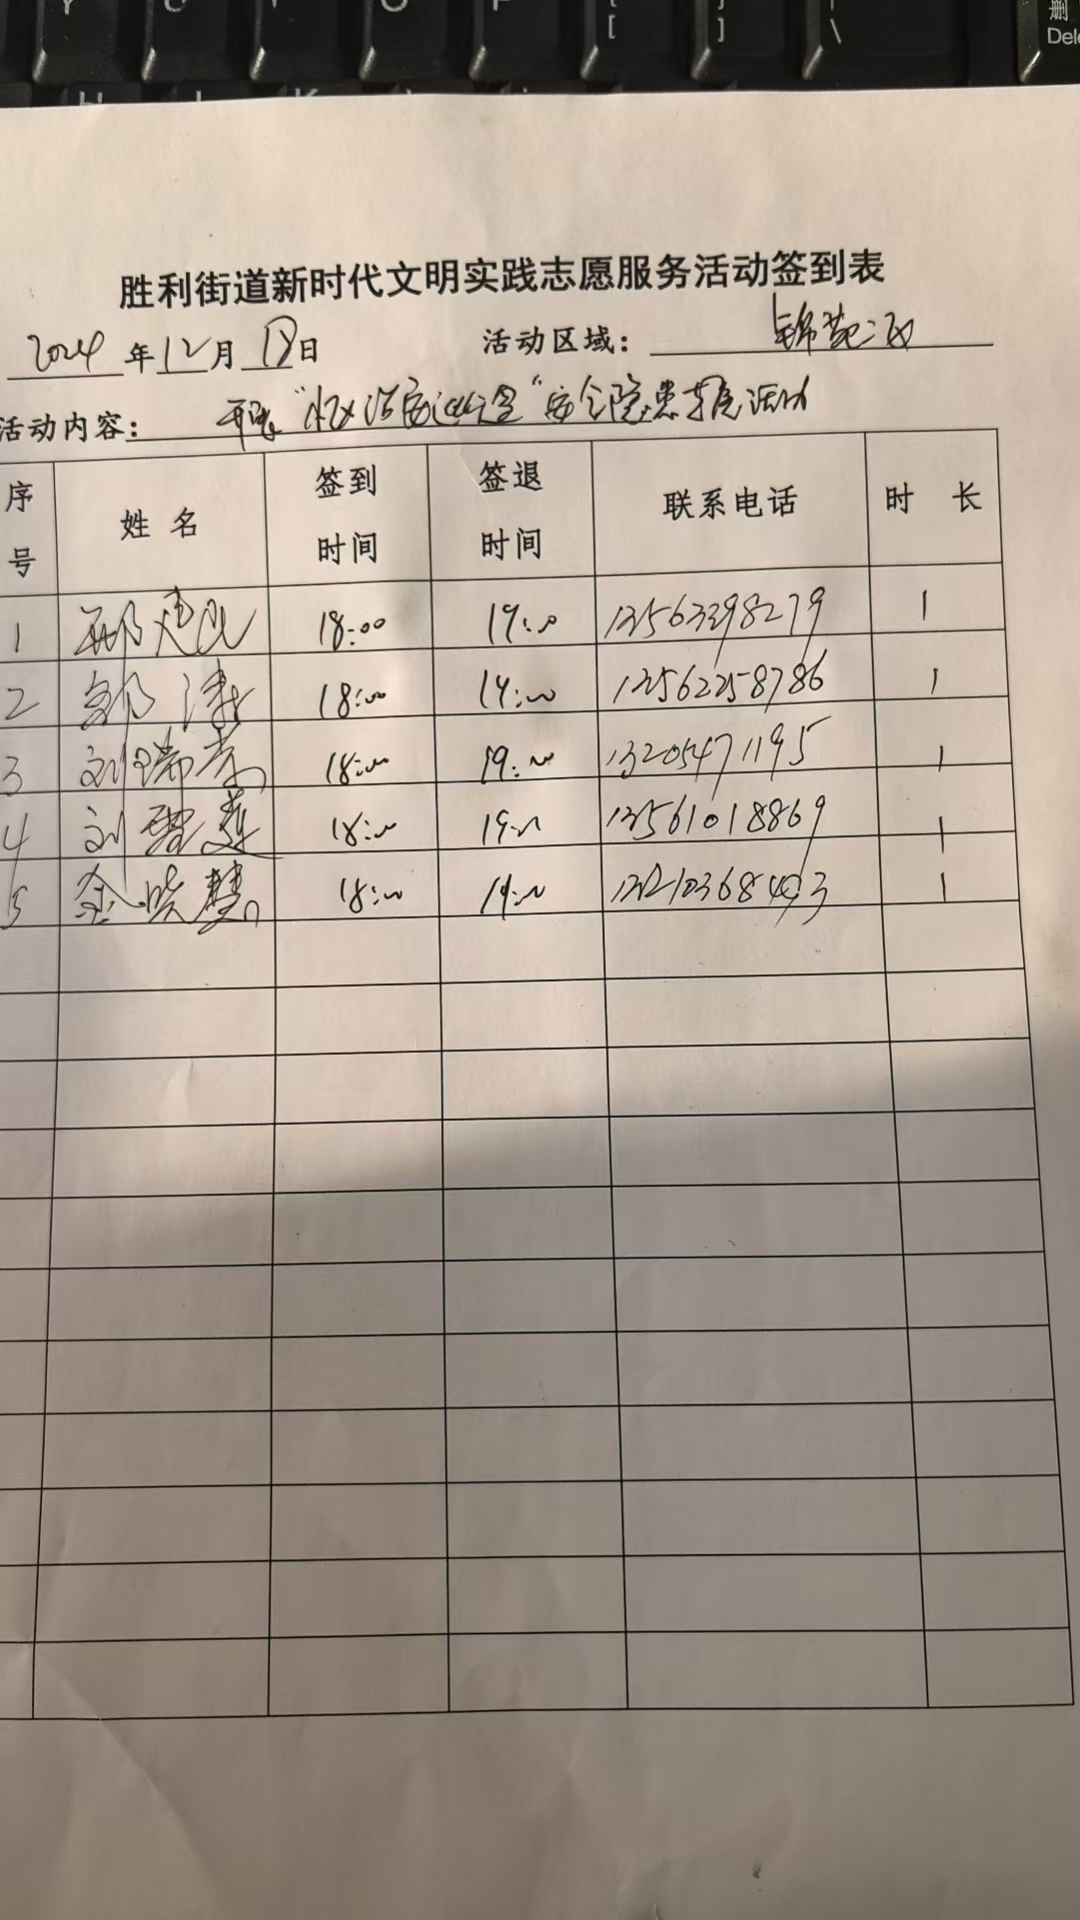 Y
U
I
O
P
[
]
\
删
Dele
胜利街道新时代文明实践志愿服务活动签到表
2024年12月18日 活动区域：锦苑二区
活动内容：开展" "安全隐患排查活动
序号 姓名 签到时间 签退时间 联系电话 时 长
1 邢建 18:00 19:00 13563398279 1
2 邹涛 18:00 19:00 13562258786 1
3 刘瑞芳 18:00 19:00 13205471195 1
4 刘 莲 18:00 19:00 13561018869 1
5 金晓慧 18:00 19:00 13210368493 1